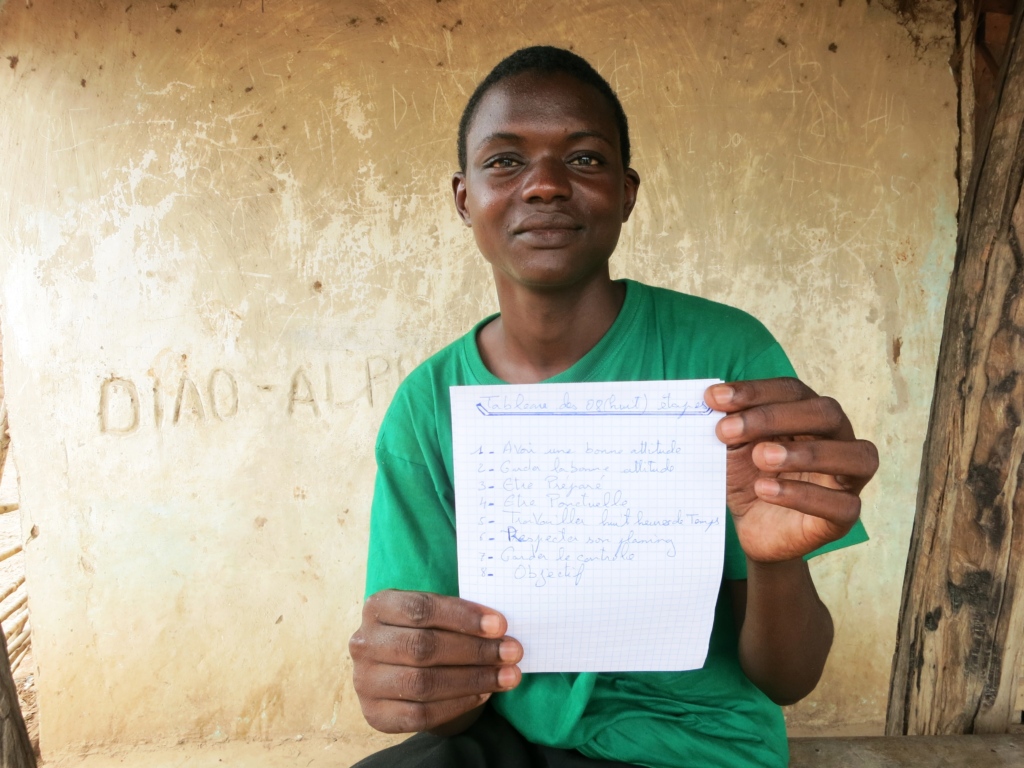 DIAO-ALP
Tableau des 08(huit) étapes
1- Avoir une bonne attitude
2- Garder la bonne attitude
3- Etre Préparé
4- Etre Ponctuelle
5- Travailler huit heures de Temps
6- Respecter son planning
7- Garder le contrôle
8- Objectif